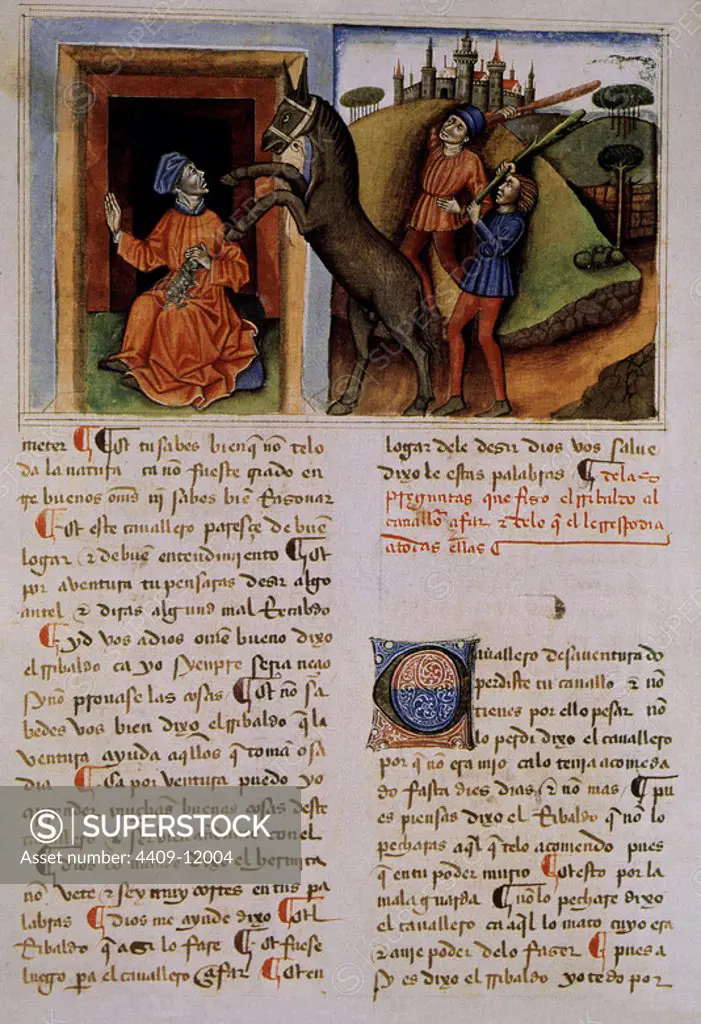 meter Et tu sabes bien q̃ nõ telo
da la natura ca nõ fueste criado en
tre buenos om̃s nj̃ sabes bien Razonar
Et este cavallero paresçe de buẽ
logar & de buẽ entendimiento Et
por aventura tu pensaras desir algo
antel & diras algund mal Recabdo
Yd vos a dios om̃e bueno dixo
el Ribaldo ca yo syenpre seria neçio
sy nõ provase las cosas Et nõ sa
bedes vos bien dixo el Ribaldo q̃ la
ventura ayuda aq̃llos q̃ toman osa
dia Ca por ventura puedo yo
aprender muchas buenas cosas deste
el hermita
nõ vete & sey muy cortes en tus pa
labras Dios me ayude dixo El
Ribaldo q̃ asi lo fare Et fuese
luego pa el cavallero Zifar Et en
logar dele desir dios vos salue
dixo le estas palabras Delas
preguntas que fiso el Ribaldo al
cavallo zifar & delo que el le Respodia
a todas ellas
Cavallero desaventurado
perdiste tu cavallo & nõ
tienes por ello pesar nõ
lo perdi dixo el cavallero
por q̃ nõ era mjo ca lo tenja acomẽda
do fasta dies dias & nõ mas Pu
es piensas dixo el Ribaldo que nõ lo
pecharas aq̃l q̃ telo acomendo pues
q̃ en tu poder murio Et esto por la
mala guarda Nõ lo pechare dixo
el cavallero ca aq̃l lo mato cuyo era
& avie poder delo faser Pues a
sy es dixo el Ribaldo yo te do por
SUPERSTOCK
Asset number: 4409-12004